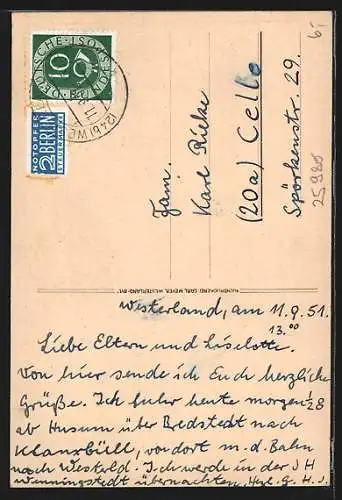 DEUTSCHE BUNDESPOST
10
NOTOPFER
2 BERLIN
STEUERMARKE
(24b) WE
Fam.
Karl Rieke
(20a) Celle
Spörkenstr. 29.
25980
6,-
Westerland, am 11.9.51.
13.00
Liebe Eltern und Liselotte.
Von hier sende ich Euch herzliche
Grüße. Ich fuhr heute morgen 1/2 8
ab Husum über Bredstedt nach
Klanxbüll, von dort m. d. Bahn
nach Westerld. Ich werde in der J H
Wenningstedt übernachten. Herzl. G. H. J.